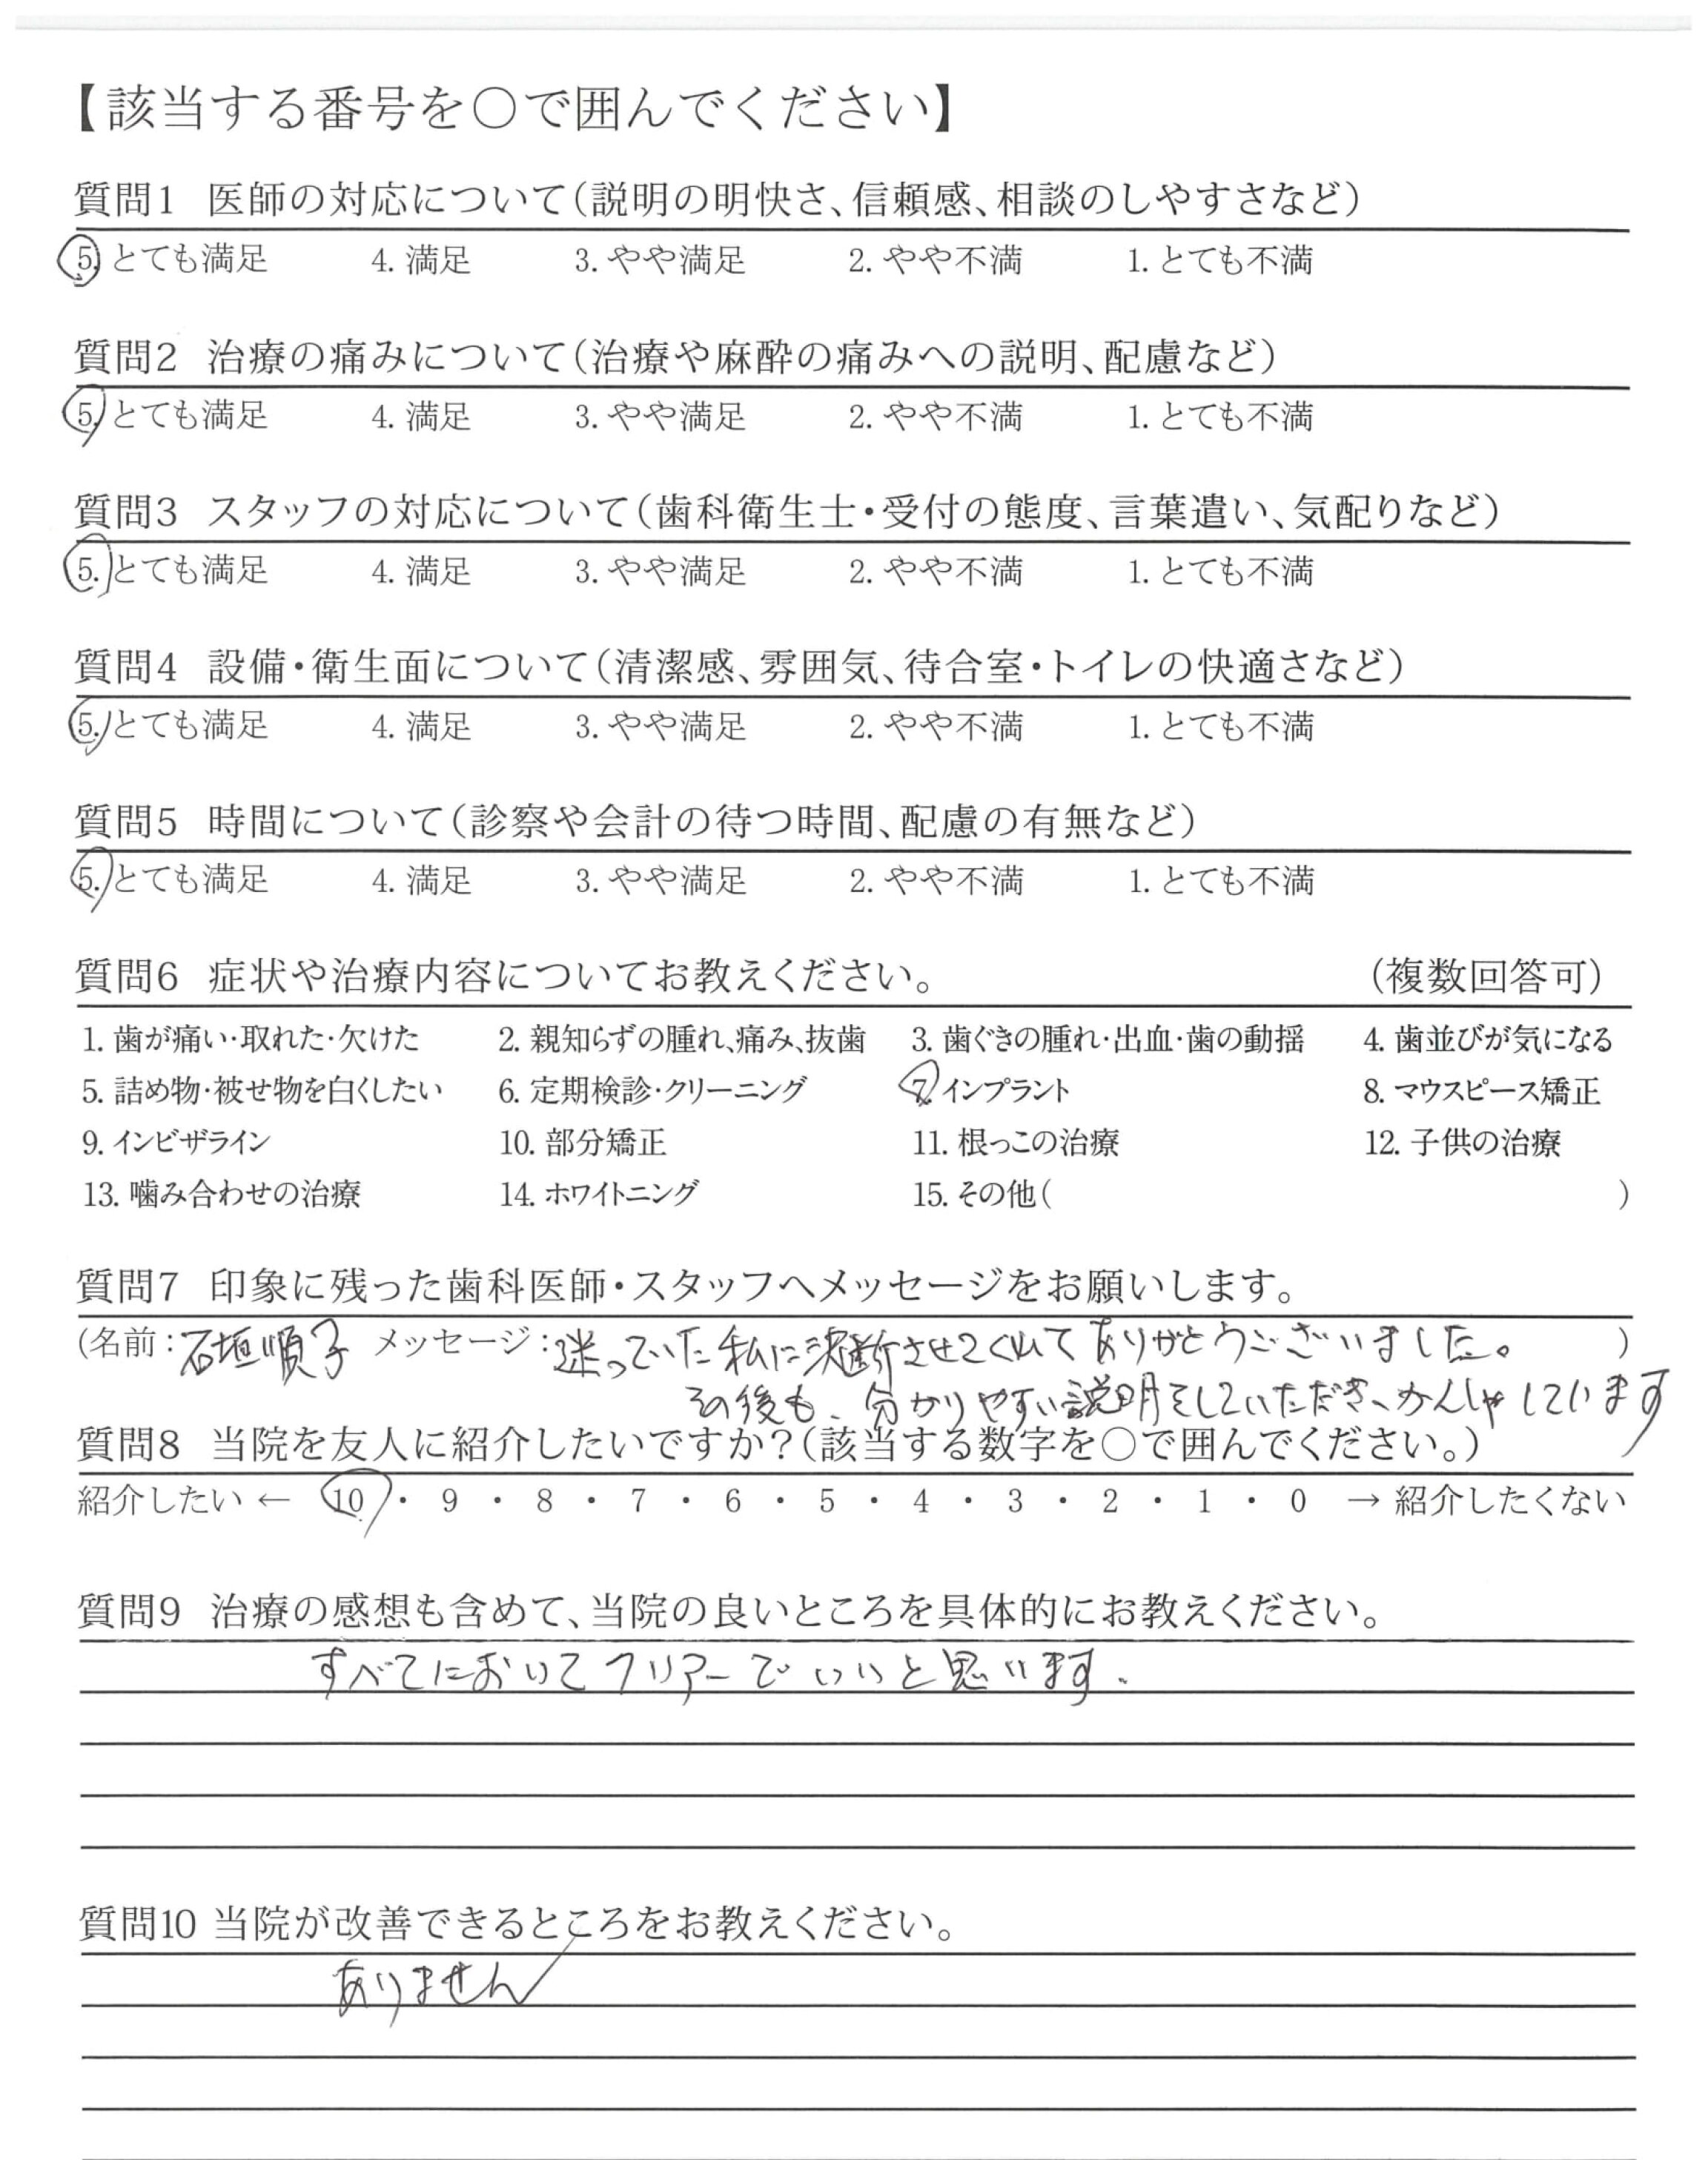 【該当する番号を〇で囲んでください】
質問1 医師の対応について(説明の明快さ、信頼感、相談のしやすさなど)
5. とても満足 4. 満足 3. やや満足 2. やや不満 1. とても不満
質問2 治療の痛みについて(治療や麻酔の痛みへの説明、配慮など)
5. とても満足 4. 満足 3. やや満足 2. やや不満 1. とても不満
質問3 スタッフの対応について(歯科衛生士・受付の態度、言葉遣い、気配りなど)
5. とても満足 4. 満足 3. やや満足 2. やや不満 1. とても不満
質問4 設備・衛生面について(清潔感、雰囲気、待合室・トイレの快適さなど)
5. とても満足 4. 満足 3. やや満足 2. やや不満 1. とても不満
質問5 時間について(診察や会計の待つ時間、配慮の有無など)
5. とても満足 4. 満足 3. やや満足 2. やや不満 1. とても不満
質問6 症状や治療内容についてお教えください。 (複数回答可)
1. 歯が痛い・取れた・欠けた 2. 親知らずの腫れ、痛み、抜歯 3. 歯ぐきの腫れ・出血・歯の動揺 4. 歯並びが気になる
5. 詰め物・被せ物を白くしたい 6. 定期検診・クリーニング 7. インプラント 8. マウスピース矯正
9. インビザライン 10. 部分矯正 11. 根っこの治療 12. 子供の治療
13. 噛み合わせの治療 14. ホワイトニング 15. その他( )
質問7 印象に残った歯科医師・スタッフへメッセージをお願いします。
(名前:石垣順子 メッセージ:迷っていた私に決断させてくれてありがとうございました。 )
その後も、分かりやすい説明をしていただき、かんしゃしています
質問8 当院を友人に紹介したいですか?(該当する数字を〇で囲んでください。)
紹介したい ← 10 ・ 9 ・ 8 ・ 7 ・ 6 ・ 5 ・ 4 ・ 3 ・ 2 ・ 1 ・ 0 → 紹介したくない
質問9 治療の感想も含めて、当院の良いところを具体的にお教えください。
すべてにおいてクリアーでいいと思います.
質問10 当院が改善できるところをお教えください。
ありません